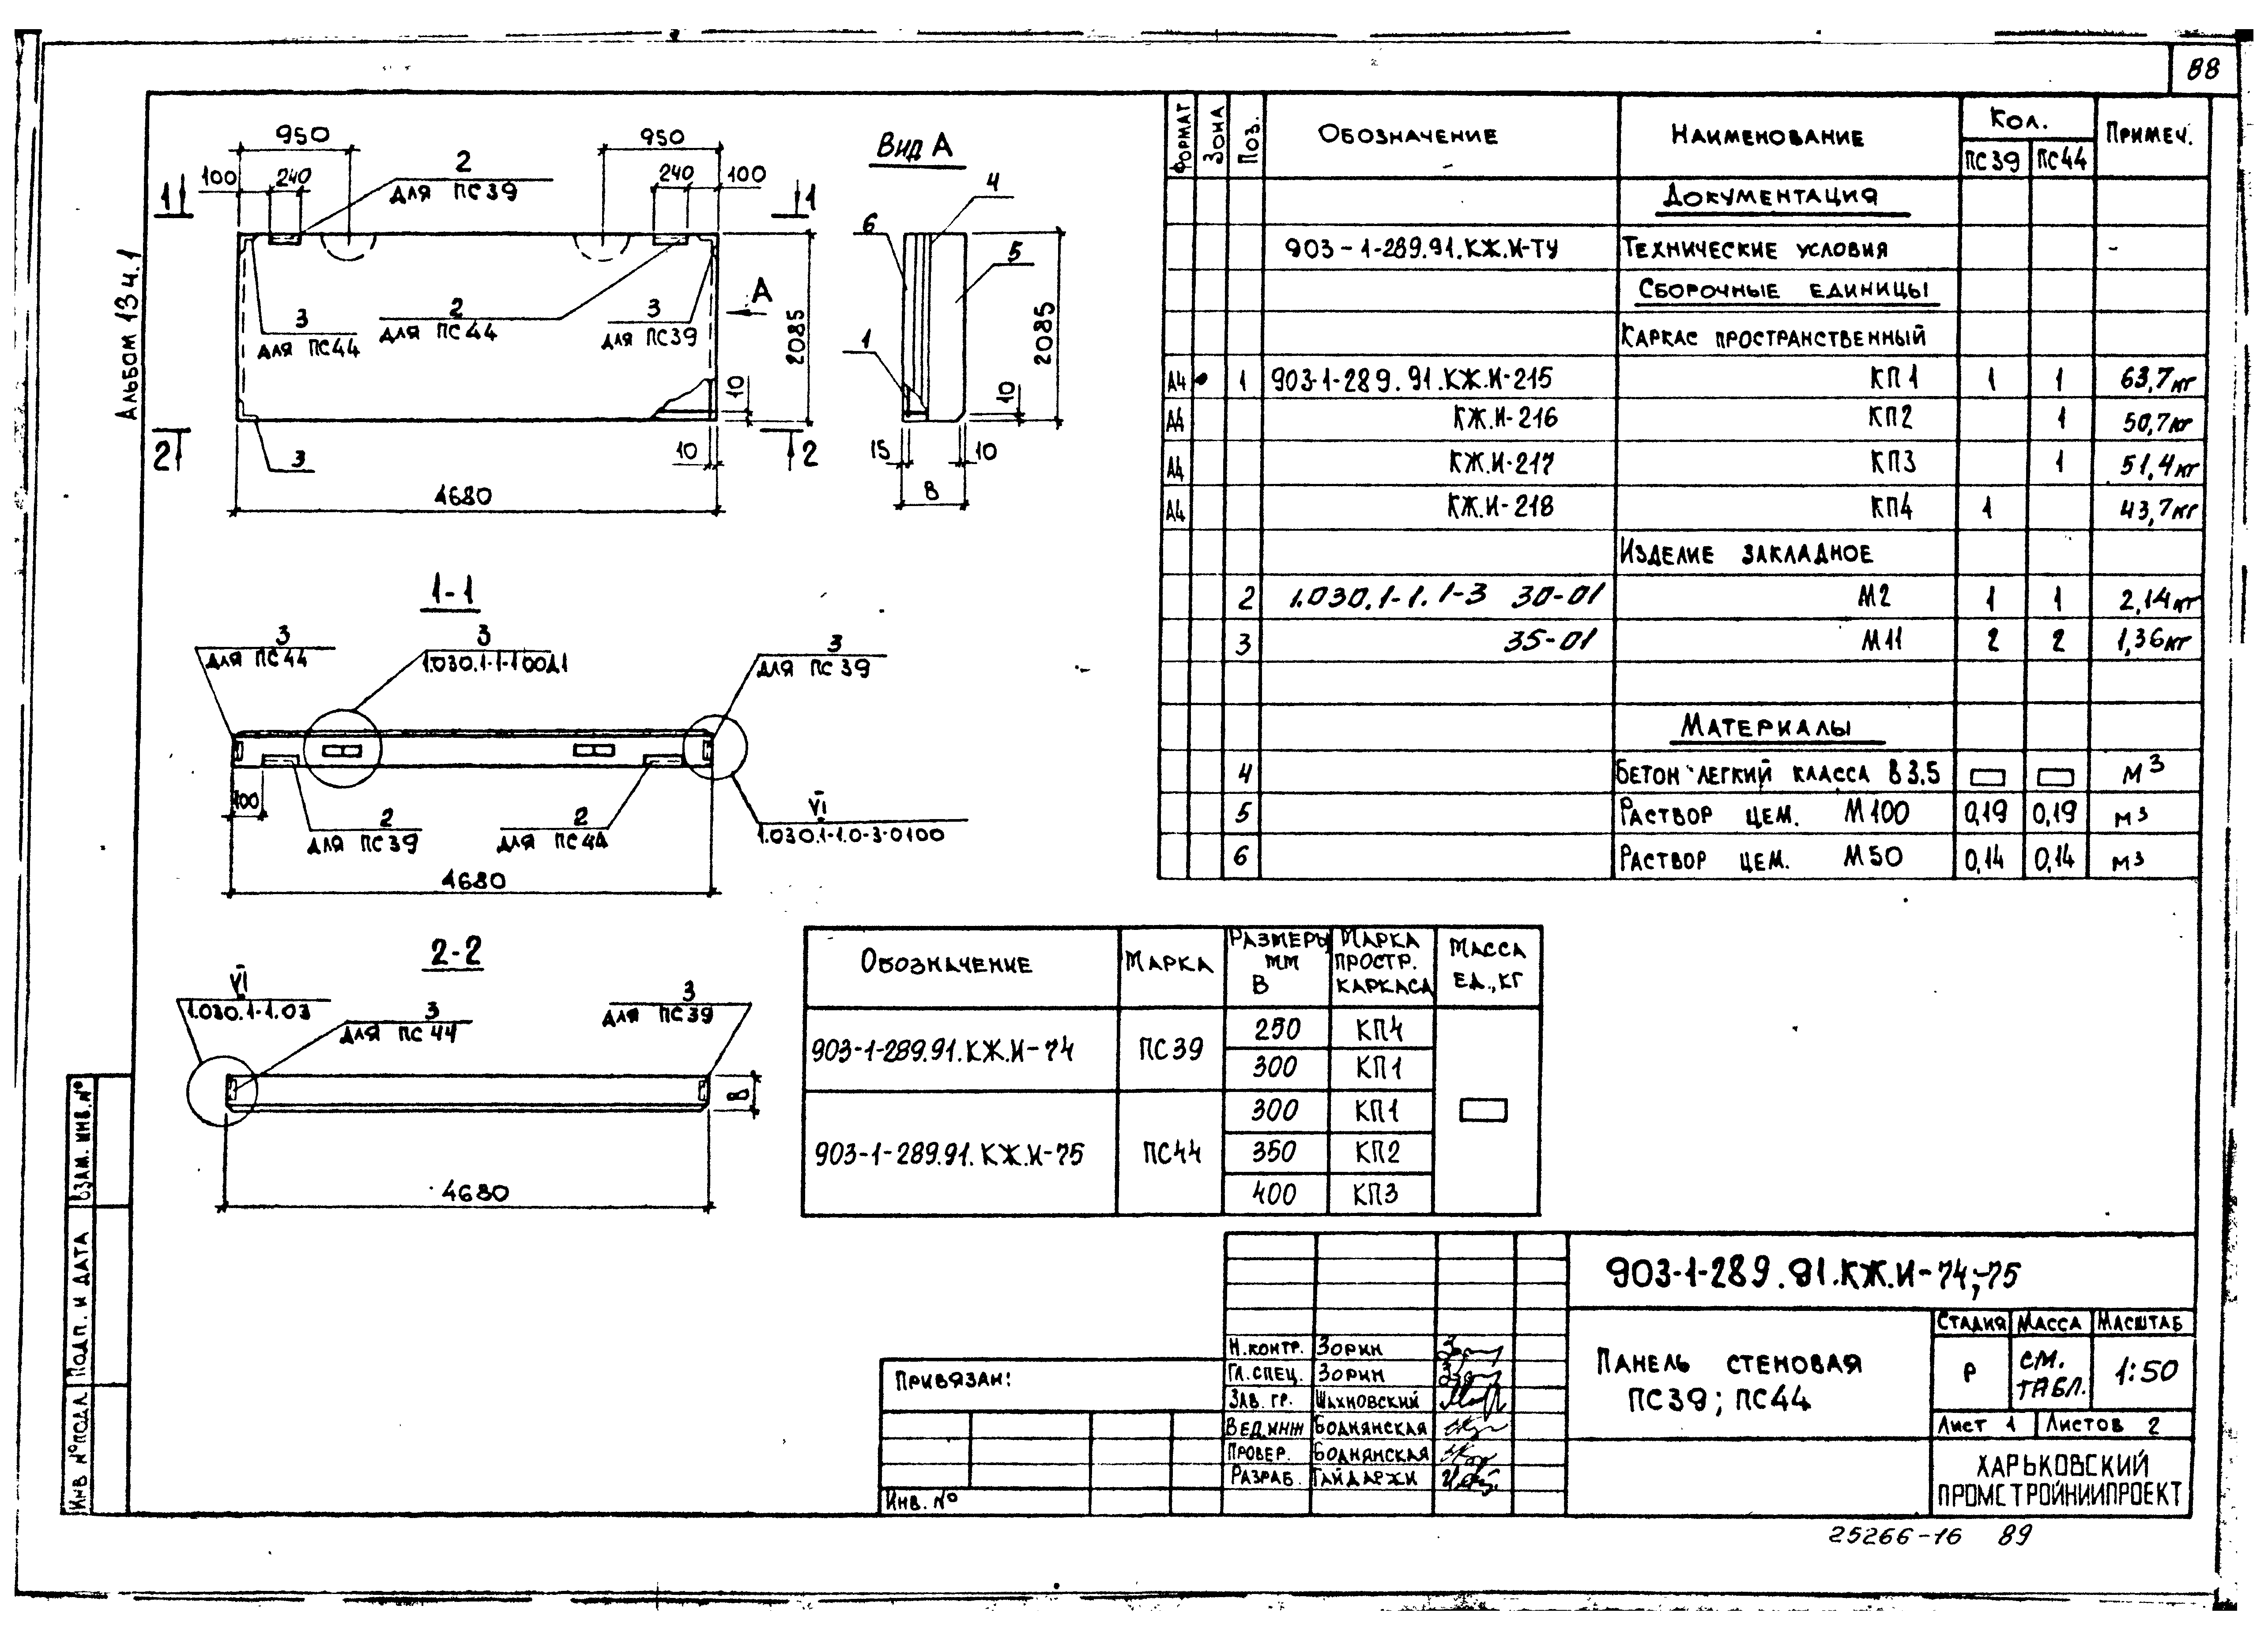 88
Альбом 13 ч.1
950
950
100
240
2
для ПС39
240
100
1
1
3
для ПС44
2
для ПС44
3
для ПС39
А
2085
10
2
2
3
10
4680
Вид А
4
6
5
1
2085
10
15
10
В
1-1
3
для ПС44
3
1.030.1-1-100Д1
3
для ПС39
100
2
для ПС39
2
для ПС44
VI
1.030.1-1.0-3-0100
4680
2-2
VI
1.030.1-1.03
3
для ПС44
3
для ПС39
В
4680
Формат Зона Поз. Обозначение Наименование Кол. Примеч.
ПС39 ПС44
Документация
903-1-289.91.КЖ.И-ТУ Технические условия -
Сборочные единицы
Каркас пространственный
А4 1 903-1-289.91.КЖ.И-215 КП1 1 1 63,7кг
А4 КЖ.И-216 КП2 1 50,7кг
А4 КЖ.И-217 КП3 1 51,4кг
А4 КЖ.И-218 КП4 1 43,7кг
Изделие закладное
2 1.030.1-1.1-3 30-01 М2 1 1 2,14кг
3 35-01 М11 2 2 1,36кг
Материалы
4 Бетон легкий класса В3,5 м3
5 Раствор цем. М100 0,19 0,19 м3
6 Раствор цем. М50 0,14 0,14 м3
Обозначение Марка Размеры мм В Марка простр. каркаса Масса ед., кг
903-1-289.91.КЖ.И-74 ПС39 250 КП4
300 КП1
903-1-289.91.КЖ.И-75 ПС44 300 КП1
350 КП2
400 КП3
903-1-289.91.КЖ.И-74;-75
Панель стеновая
ПС39; ПС44
Стадия Масса Масштаб
Р см. табл. 1:50
Лист 1 Листов 2
Харьковский
Промстройниипроект
Н.контр. Зорин
Гл.спец. Зорин
Зав. гр. Шахновский
Вед.инж Боднянская
Провер. Боднянская
Разраб. Гайдаржи
Привязан:
Инв. №
Взам. инв. №
Подп. и дата
Инв № подл
25266-16 89